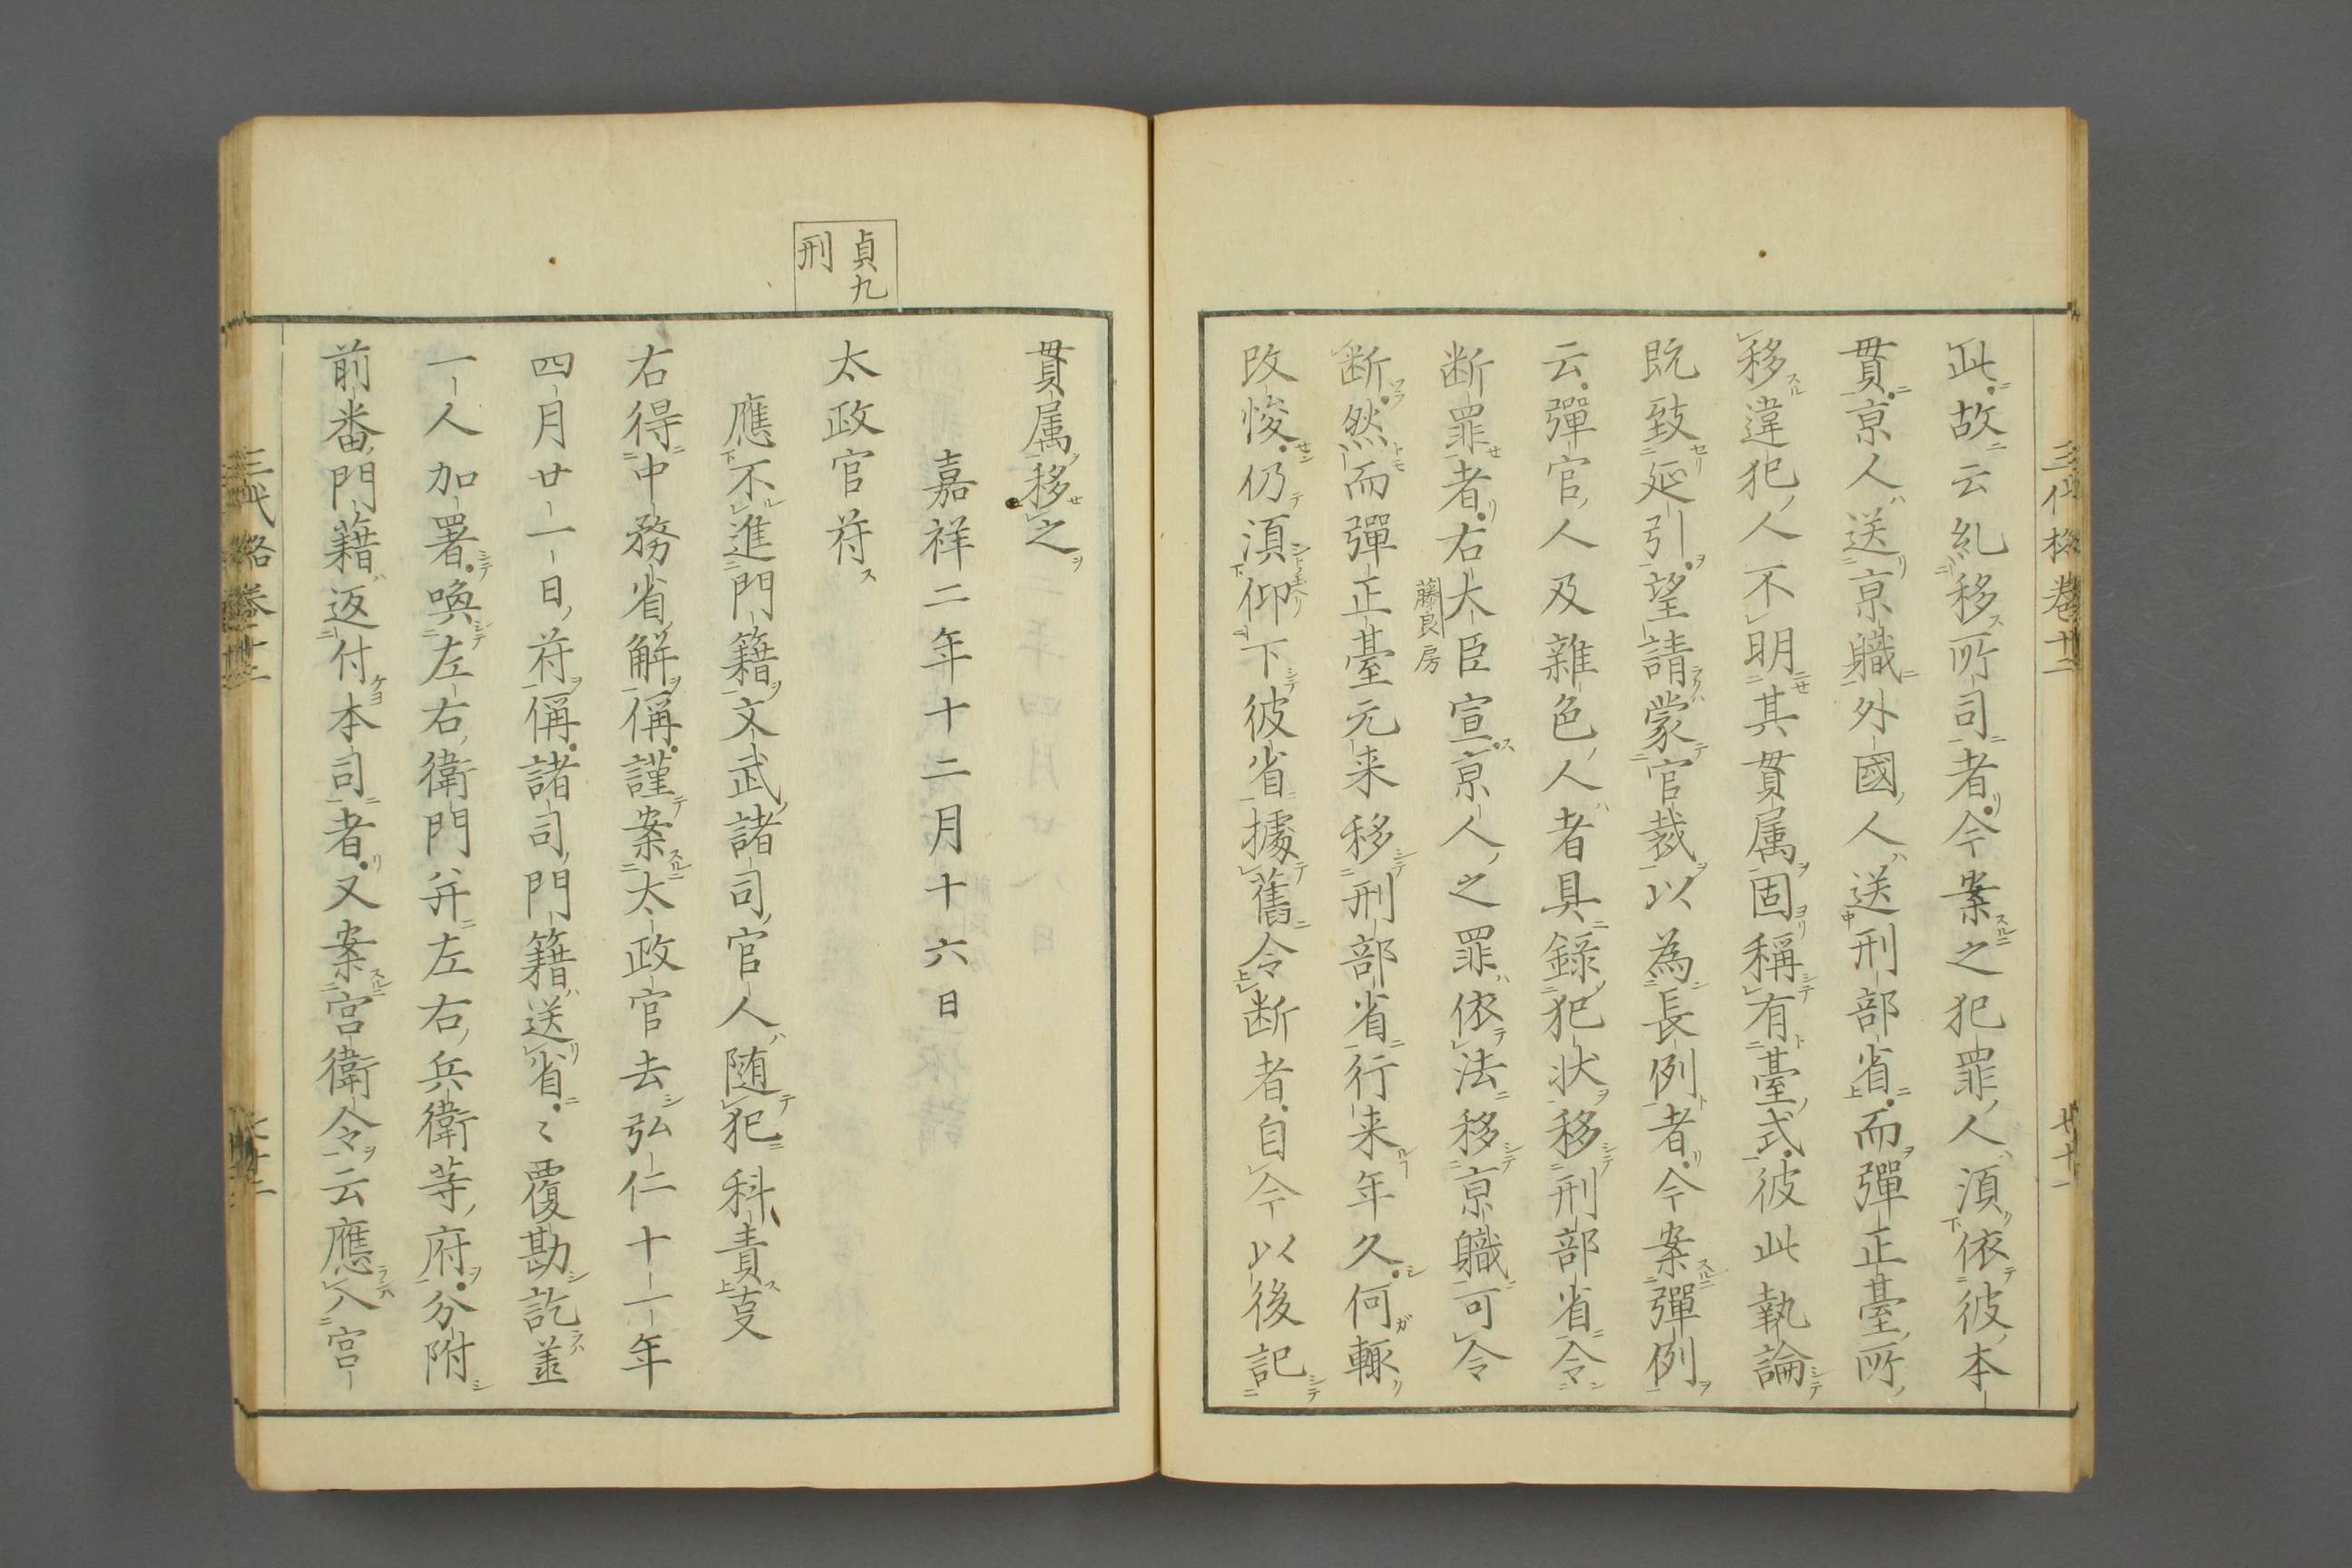 三代格卷十二
廿十一
此故云糺移所司者今案之犯罪人須依彼本
貫京人送京職外國人送刑部省而彈正臺所
移違犯人不明其貫属固稱有臺式彼此執論
既致延引望請蒙官裁以為長例者今案彈例
云彈官人及雜色人者具錄犯状移刑部省令
断罪者右大臣宣京人之罪依法移京職可令
藤良房
断然而彈正臺元来移刑部省行来年久何輙
改悛仍須仰下彼省據舊令断者自今以後記
貫属移之
嘉祥二年十二月十六日
貞九
刑
太政官符
應不進門籍文武諸司官人随犯科責㕝
右得中務省解偁謹案太政官去弘仁十一年
四月廿一日符偁諸司門籍送省〻覆勘訖並
一人加署喚左右衛門并左右兵衛等府分附
前番門籍返付本司者又案宮衛令云應入宮
三代格卷十二